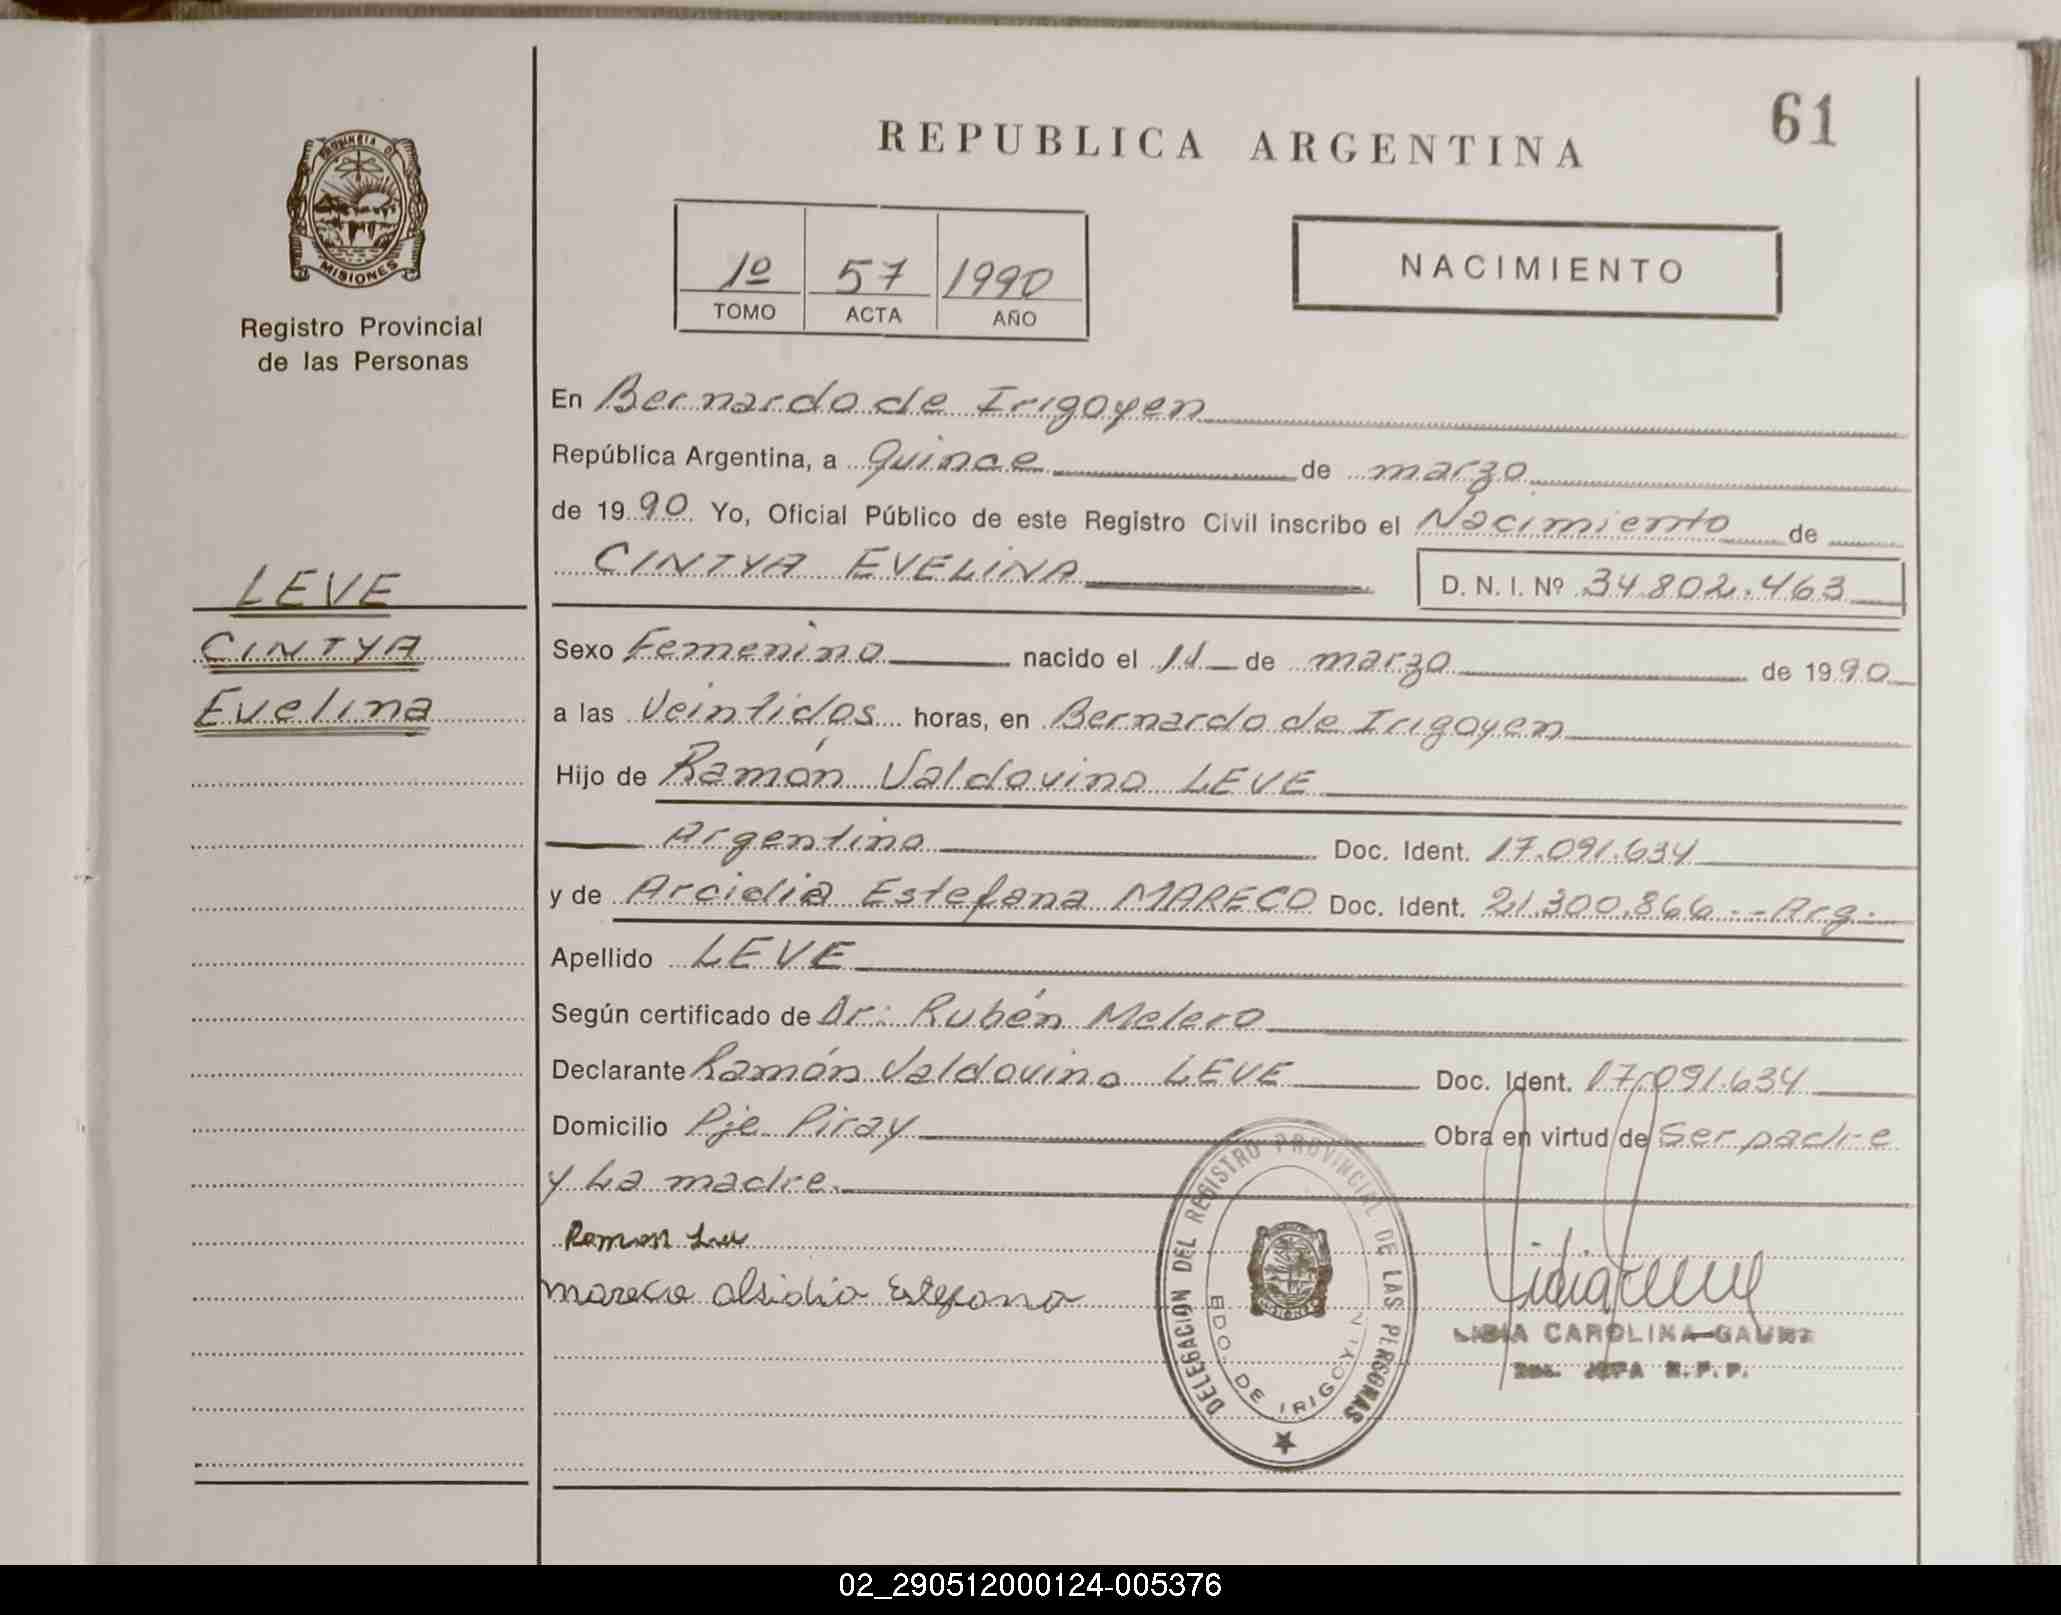 61
REPUBLICA ARGENTINA
PROVINCIA DE
MISIONES
Registro Provincial
de las Personas
1º 57 1990
TOMO ACTA AÑO
NACIMIENTO
En Bernardo de Irigoyen
República Argentina, a Quince de marzo
de 1990 Yo, Oficial Público de este Registro Civil inscribo el Nacimiento de
CINTYA EVELINA D. N. I. Nº 34.802.463
LEVE
CINTYA
Evelina
Sexo Femenino nacido el 11 de marzo de 1990
a las Veintidós horas, en Bernardo de Irigoyen
Hijo de Ramón Valdovino LEVE
Argentino Doc. Ident. 17.091.634
y de Arcidia Estefana MARECO Doc. Ident. 21.300.866 -- Arg.
Apellido LEVE
Según certificado de Dr: Rubén Melero
Declarante Ramón Valdovino LEVE Doc. Ident. 17.091.634
Domicilio Pje Piray Obra en virtud de Ser padre
y La madre.
Ramon
mareco alsidia Estefana
DELEGACIÓN DEL REGISTRO PROVINCIAL DE LAS PERSONAS
BDO. DE IRIGOYEN
LIDIA CAROLINA
JEFA R.P.P.
02_290512000124-005376